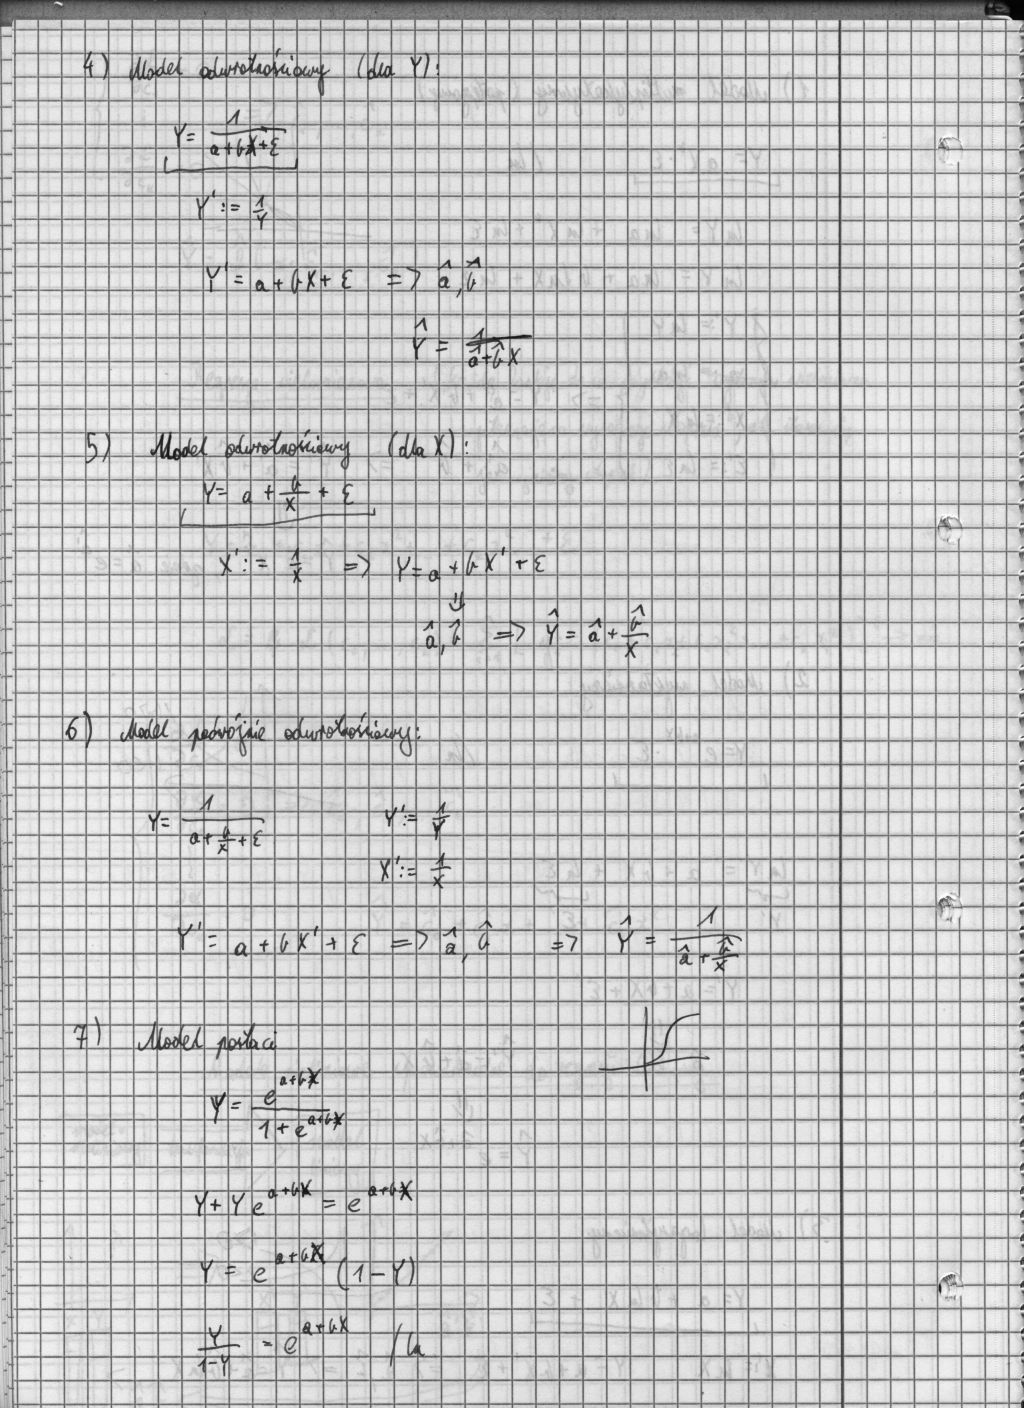 4) Model odwrotnościowy (dla Y):
Y = 1/(a+bX+ε)
Y' := 1/Y
Y' = a + bX + ε => â, b̂
Ŷ = 1/(â+b̂X)
5) Model odwrotnościowy (dla X):
Y = a + b/X + ε
X' := 1/X => Y = a + bX' + ε
⇓
â, b̂ => Ŷ = â + b̂/X
6) Model podwójnie odwrotnościowy:
Y = 1/(a + b/X + ε) Y' := 1/Y
X' := 1/X
Y' = a + bX' + ε => â, b̂ => Ŷ = 1/(â + b̂/X)
7) Model postaci
Y = e^(a+bX)/(1+e^(a+bX))
Y + Y e^(a+bX) = e^(a+bX)
Y = e^(a+bX) (1-Y)
Y/(1-Y) = e^(a+bX) / ln